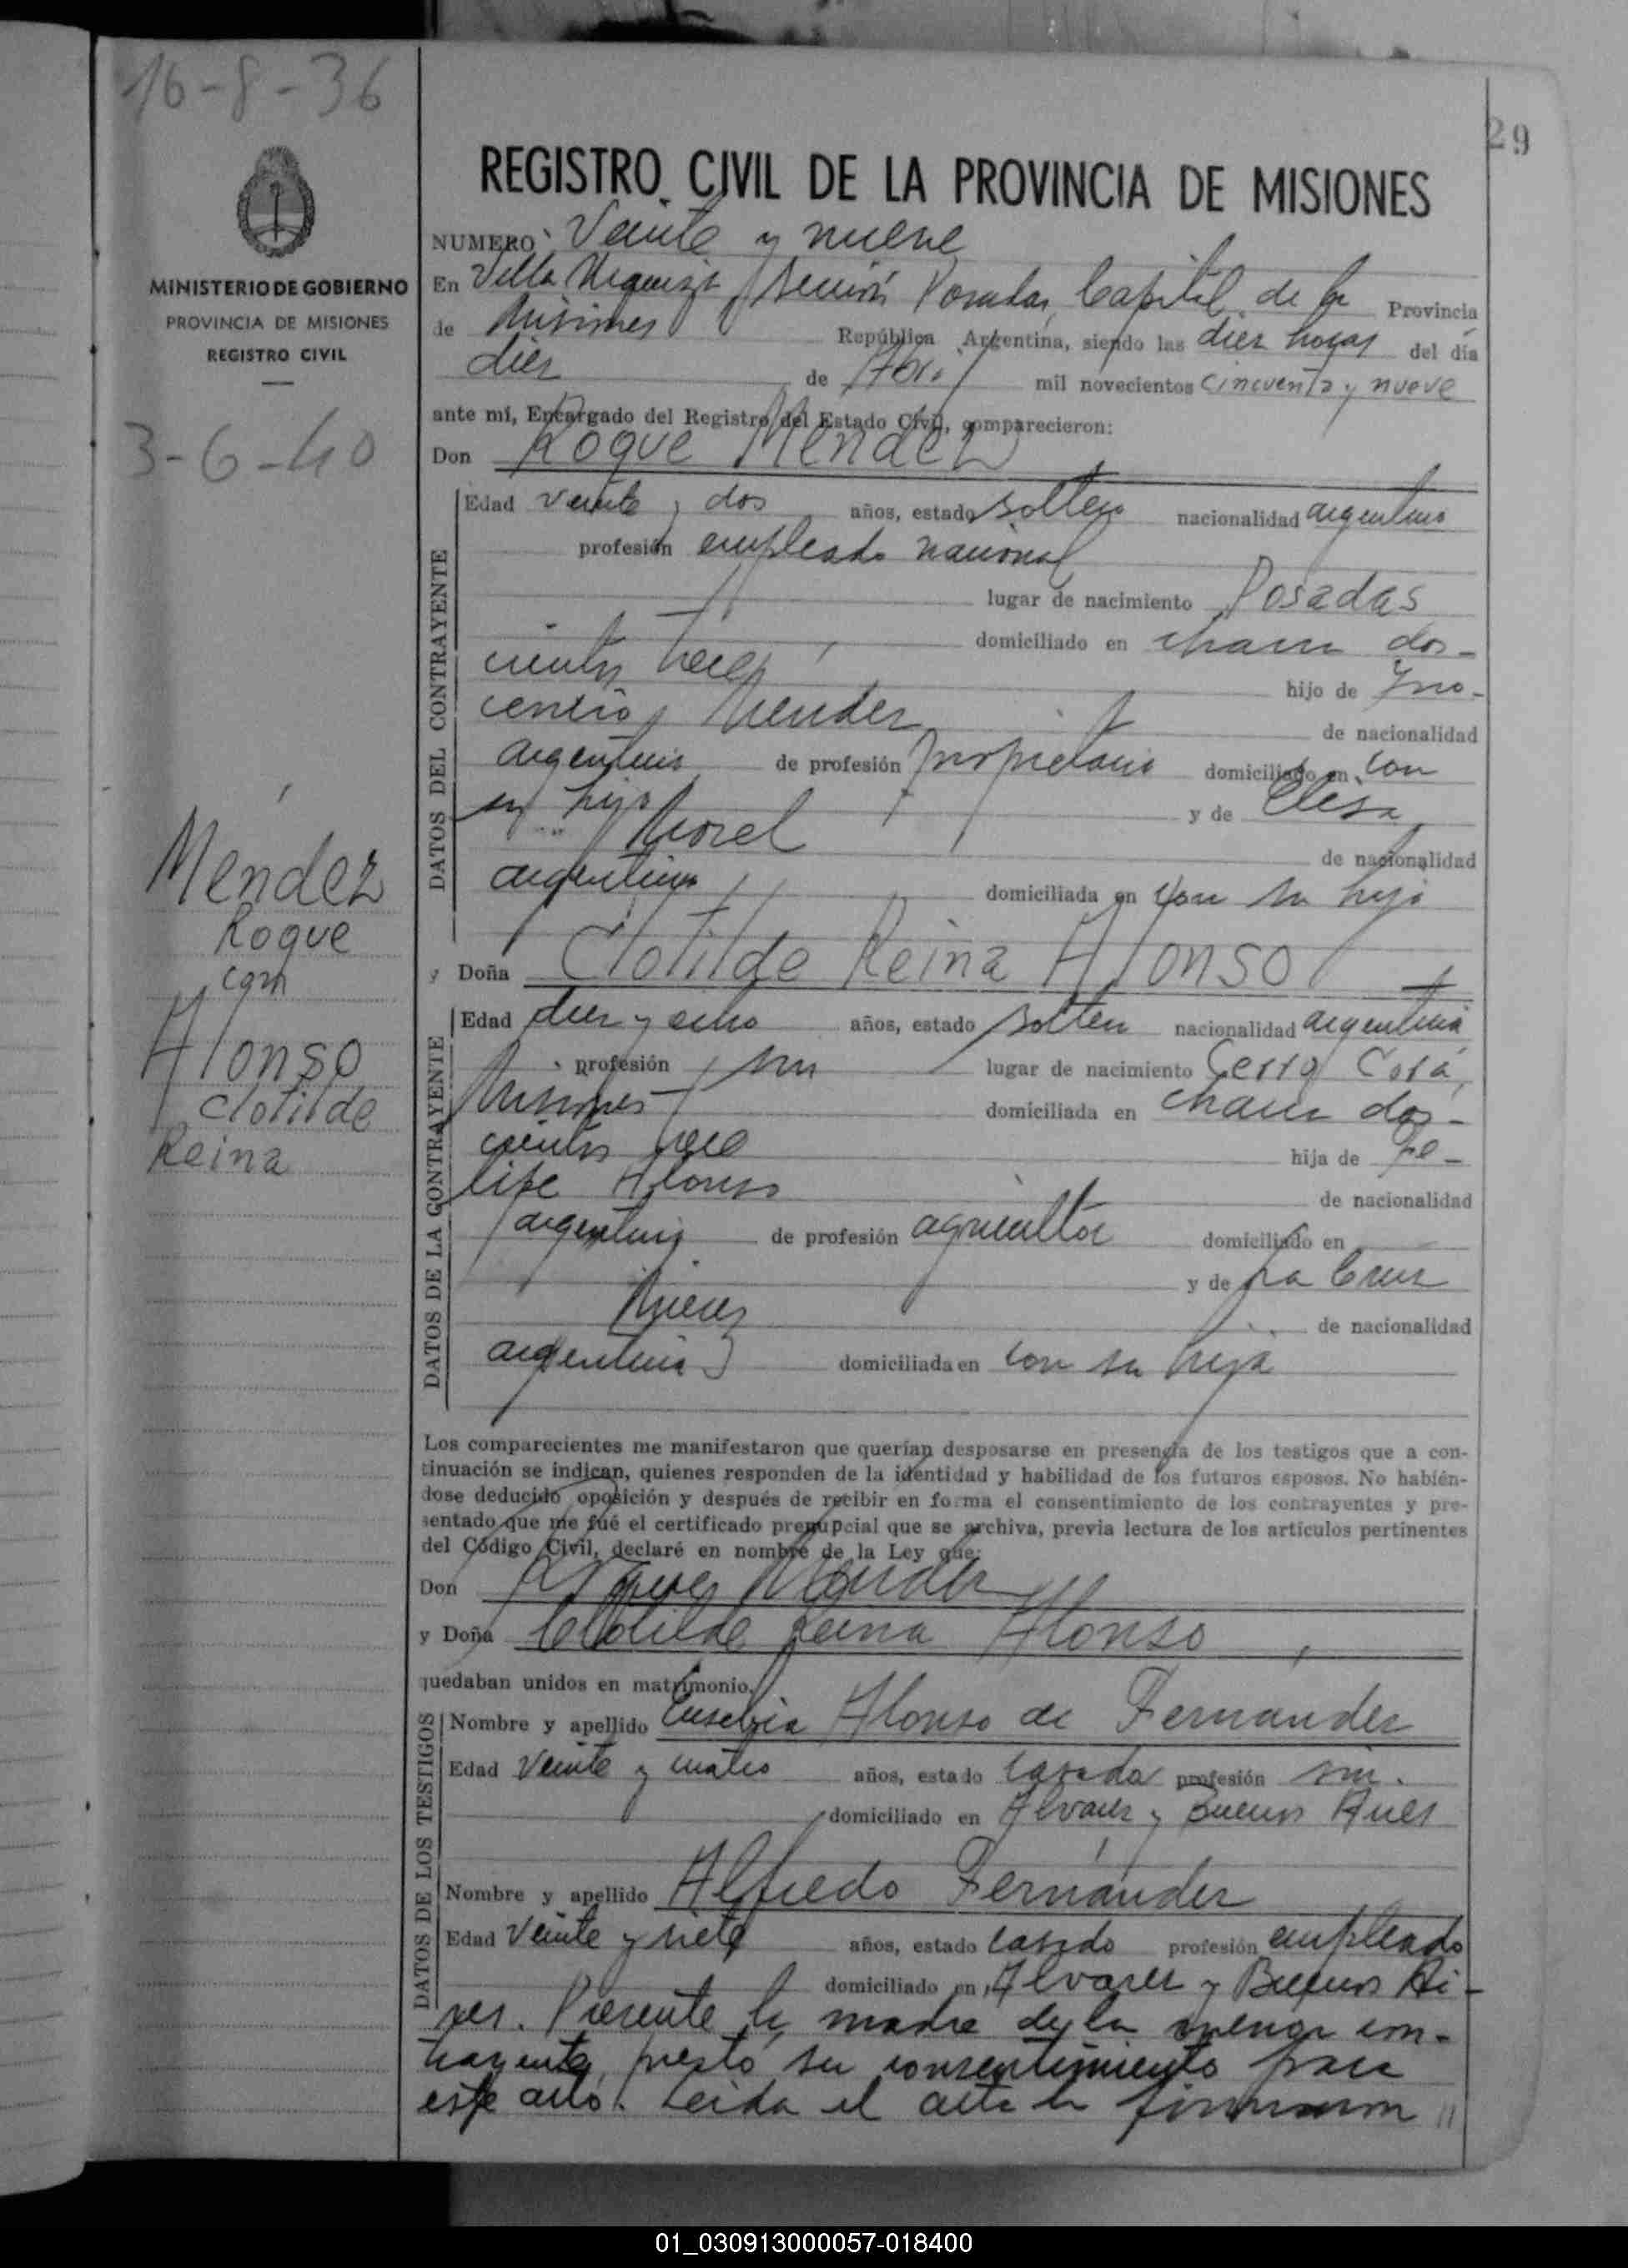 16-8-36
29
MINISTERIO DE GOBIERNO
PROVINCIA DE MISIONES
REGISTRO CIVIL
3-6-40
Mendez
Roque
con
Alonso
Clotilde
Reina
REGISTRO CIVIL DE LA PROVINCIA DE MISIONES
NUMERO Veinte y nueve
En Villa Urquiza, Sección Posadas, Capital de la Provincia
de Misiones República Argentina, siendo las diez horas del día
diez de Abril mil novecientos cincuenta y nueve
ante mí, Encargado del Registro del Estado Civil, comparecieron:
Don Roque Mendez
DATOS DEL CONTRAYENTE
Edad veinte y dos años, estado soltero nacionalidad argentino
profesión empleado nacional
lugar de nacimiento Posadas
domiciliado en chacra dos-
cientos trece, hijo de Ino-
cencio Mendez de nacionalidad
argentino de profesión propietario domiciliado en con
su hijo y de Elisa
Morel de nacionalidad
argentina domiciliada en con su hijo
y Doña Clotilde Reina Alonso
DATOS DE LA CONTRAYENTE
Edad diez y ocho años, estado soltera nacionalidad argentina
profesión sin lugar de nacimiento Cerro Corá,
Misiones domiciliada en chacra dos-
cientos trece hija de Fe-
lipe Alonso de nacionalidad
argentino de profesión agricultor domiciliado en
y de La Cruz
Nieres de nacionalidad
argentina domiciliada en con su hija
Los comparecientes me manifestaron que querían desposarse en presencia de los testigos que a con-
tinuación se indican, quienes responden de la identidad y habilidad de los futuros esposos. No habién-
dose deducido oposición y después de recibir en forma el consentimiento de los contrayentes y pre-
sentado que me fué el certificado prenupcial que se archiva, previa lectura de los artículos pertinentes
del Código Civil, declaré en nombre de la Ley que:
Don Roque Mendez
y Doña Clotilde Reina Alonso,
quedaban unidos en matrimonio.
DATOS DE LOS TESTIGOS
Nombre y apellido Eusebia Alonso de Fernandez
Edad Veinte y cuatro años, estado casada profesión sin.
domiciliado en Alvarez y Buenos Aires
Nombre y apellido Alfredo Fernández
Edad Veinte y siete años, estado casado profesión empleado
domiciliado en Alvarez y Buenos Ai-
res. Presente la madre de la menor con-
trayente, prestó su consentimiento para
este acto. Leida el acta la firmaron //
01_030913000057-018400